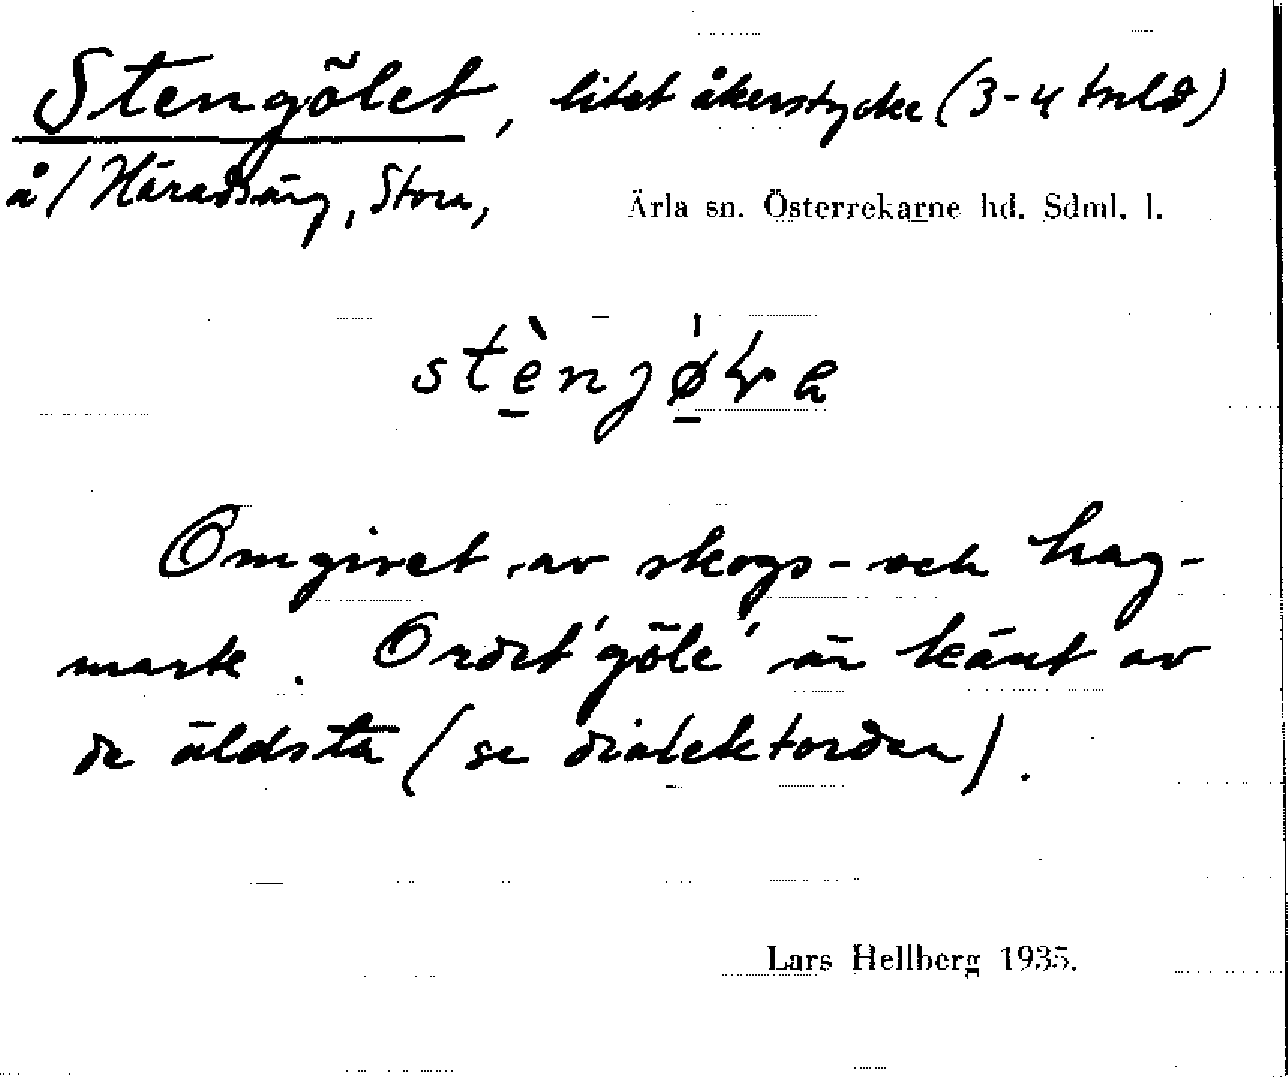 Stengölet, litet åkerstycke (3-4 tnld)
å / Häradsäng, Stora,
Ärla sn. Österrekarne hd. Sdml. l.
Omgivet av skogs- och hag-
mark. Ordet 'göle' är känt av
de äldsta (se dialektorden).
Lars Hellberg 1935.